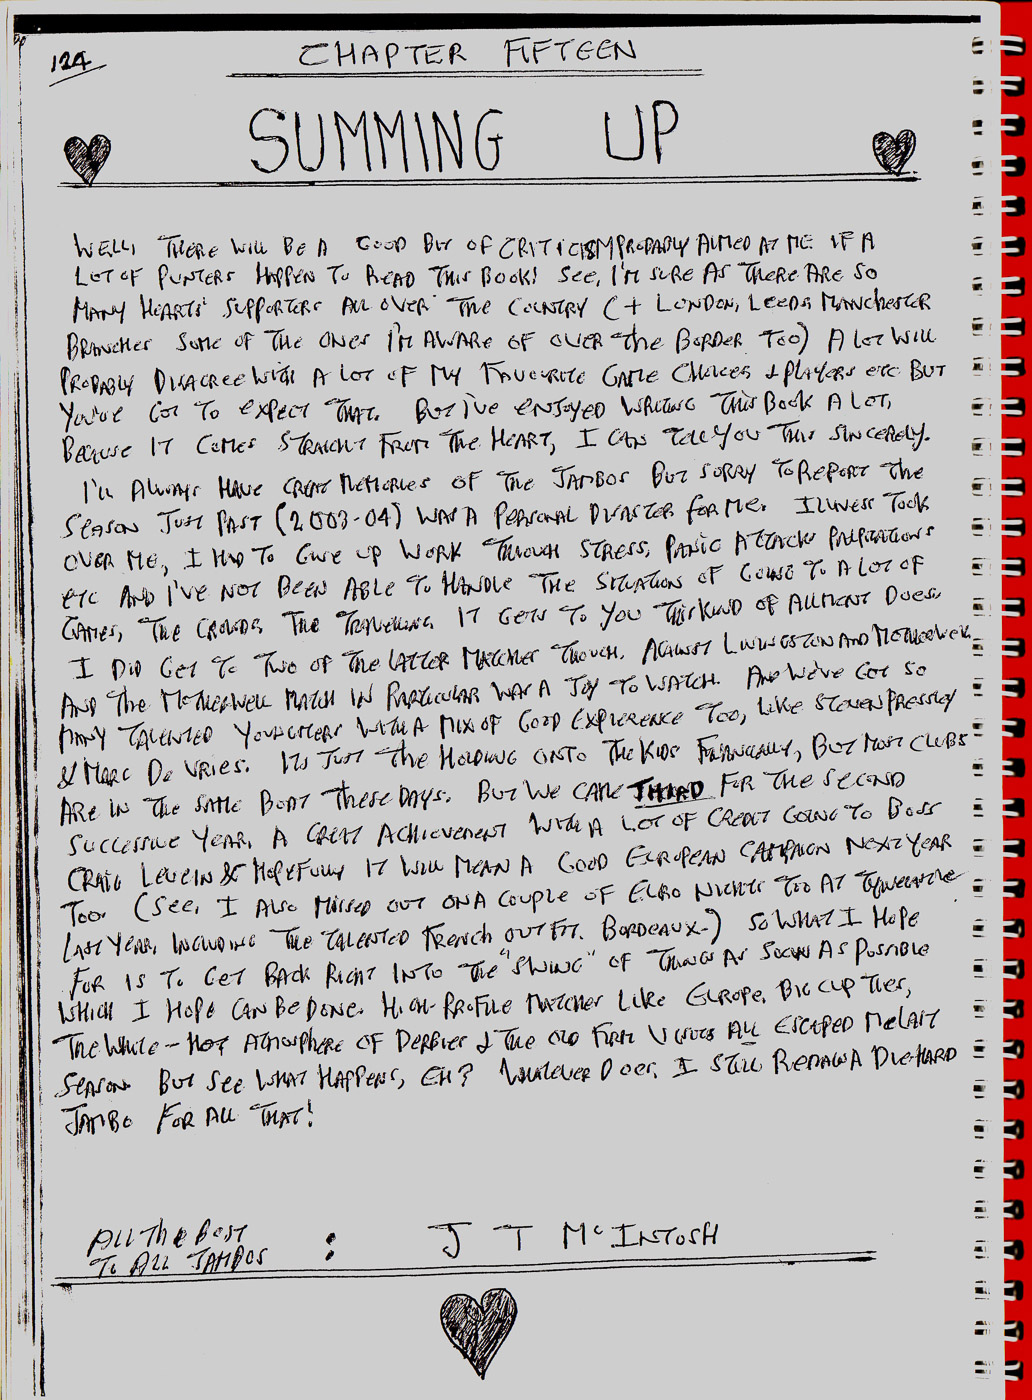 124
CHAPTER FIFTEEN
SUMMING UP
WELL, THERE WILL BE A GOOD BIT OF CRITICISM PROBABLY AIMED AT ME IF A
LOT OF PUNTERS HAPPEN TO READ THIS BOOK! SEE, I'M SURE AS THERE ARE SO
MANY HEARTS' SUPPORTERS ALL OVER THE COUNTRY (+ LONDON, LEEDS, MANCHESTER
BRANCHES SOME OF THE ONES I'M AWARE OF OVER THE BORDER TOO) A LOT WILL
PROBABLY DISAGREE WITH A LOT OF MY FAVOURITE GAME CHOICES & PLAYERS ETC BUT
YOU'VE GOT TO EXPECT THAT. BUT I'VE ENJOYED WRITING THIS BOOK A LOT,
BECAUSE IT COMES STRAIGHT FROM THE HEART, I CAN TELL YOU THIS SINCERELY.
I'LL ALWAYS HAVE GREAT MEMORIES OF THE JAMBOS BUT SORRY TO REPORT THE
SEASON JUST PAST (2003-04) WAS A PERSONAL DISASTER FOR ME. ILLNESS TOOK
OVER ME, I HAD TO GIVE UP WORK THROUGH STRESS, PANIC ATTACKS PALPITATIONS
ETC AND I'VE NOT BEEN ABLE TO HANDLE THE SITUATION OF GOING TO A LOT OF
GAMES, THE CROWDS, THE TRAVELLING. IT GETS TO YOU THIS KIND OF AILMENT DOES.
I DID GET TO TWO OF THE LATTER MATCHES THOUGH. AGAINST LIVINGSTON AND MOTHERWELL
AND THE MOTHERWELL MATCH IN PARTICULAR WAS A JOY TO WATCH. AND WE'VE GOT SO
MANY TALENTED YOUNGSTERS WITH A MIX OF GOOD EXPIERENCE TOO, LIKE STEVEN PRESSLEY
& MARC DE VRIES. ITS JUST THE HOLDING ONTO THE KIDS FINANCIALLY, BUT MOST CLUBS
ARE IN THE SAME BOAT THESE DAYS. BUT WE CAME THIRD FOR THE SECOND
SUCCESSIVE YEAR, A GREAT ACHIEVEMENT WITH A LOT OF CREDIT GOING TO BOSS
CRAIG LEVEIN & HOPEFULLY IT WILL MEAN A GOOD EUROPEAN CAMPAIGN NEXT YEAR
TOO. (SEE, I ALSO MISSED OUT ON A COUPLE OF EURO NIGHTS TOO AT TYNECASTLE
LAST YEAR, INCLUDING THE TALENTED FRENCH OUTFIT. BORDEAUX-) SO WHAT I HOPE
FOR IS TO GET BACK RIGHT INTO THE "SWING" OF THINGS AS SOON AS POSSIBLE
WHICH I HOPE CAN BE DONE. HIGH-PROFILE MATCHES LIKE EUROPE, BIG CUP TIES,
THE WHITE-HOT ATMOSPHERE OF DERBIES & THE OLD FIRM VISITS ALL ESCAPED ME LAST
SEASON. BUT SEE WHAT HAPPENS, EH? WHATEVER DOES, I STILL REMAIN A DIE-HARD
JAMBO FOR ALL THAT!
ALL THE BEST
TO ALL JAMBOS : J T McINTOSH